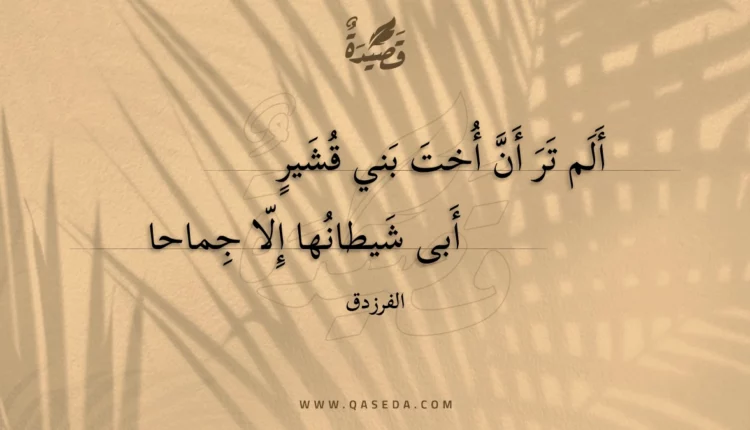 قَصِيدَةٌ
أَلَم تَرَ أَنَّ أُختَ بَني قُشَيرٍ
أَبى شَيطانُها إِلّا جِماحا
الفرزدق
WWW.QASEDA.COM